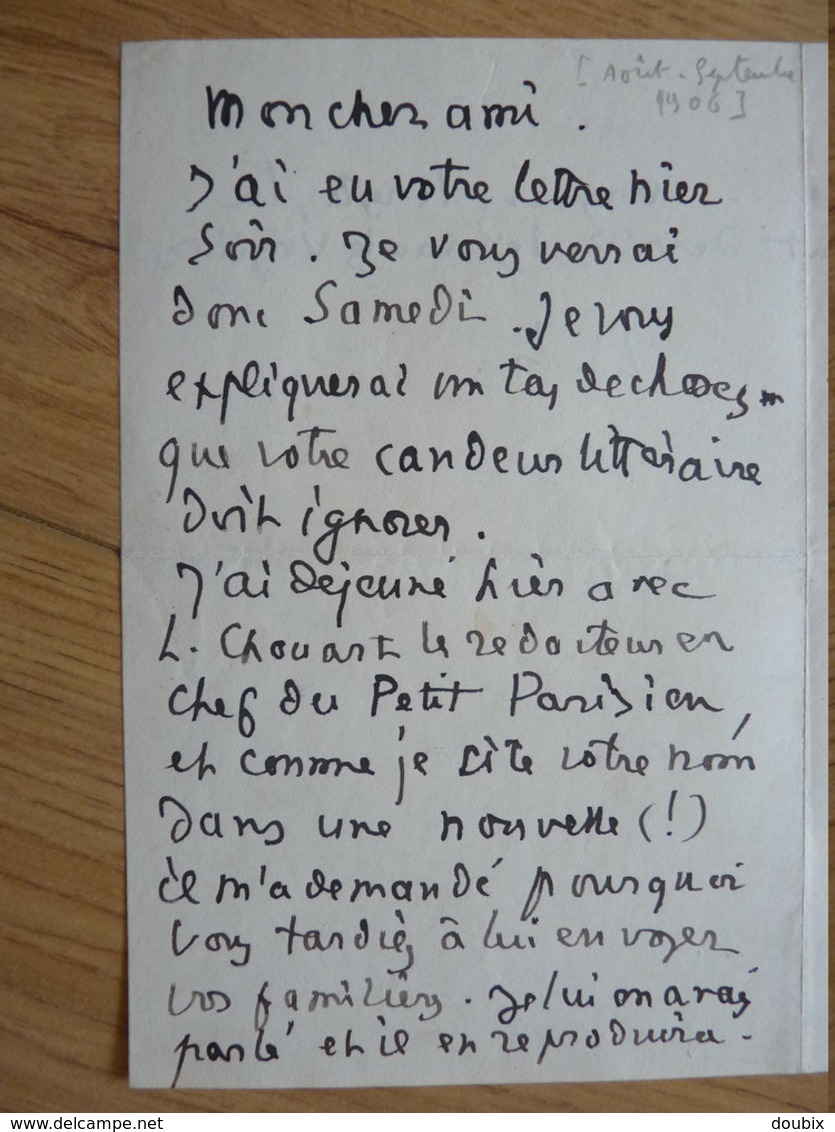 [Août-Septembre
1906]
Mon cher ami.
J'ai eu votre lettre hier
soir. Je vous verrai
donc Samedi. Je vous
expliquerai un tas de choses
que votre candeur littéraire
doit ignorer.
J'ai déjeuné hier avec
L. Chouart le redacteur en
chef du Petit Parisien,
et comme je cite votre nom
dans une nouvelle (!)
il m'a demandé pourquoi
vous tardiez à lui envoyer
vos familiers. Je lui en avais
parlé et il en reproduira.
www.delcampe.net
doubix